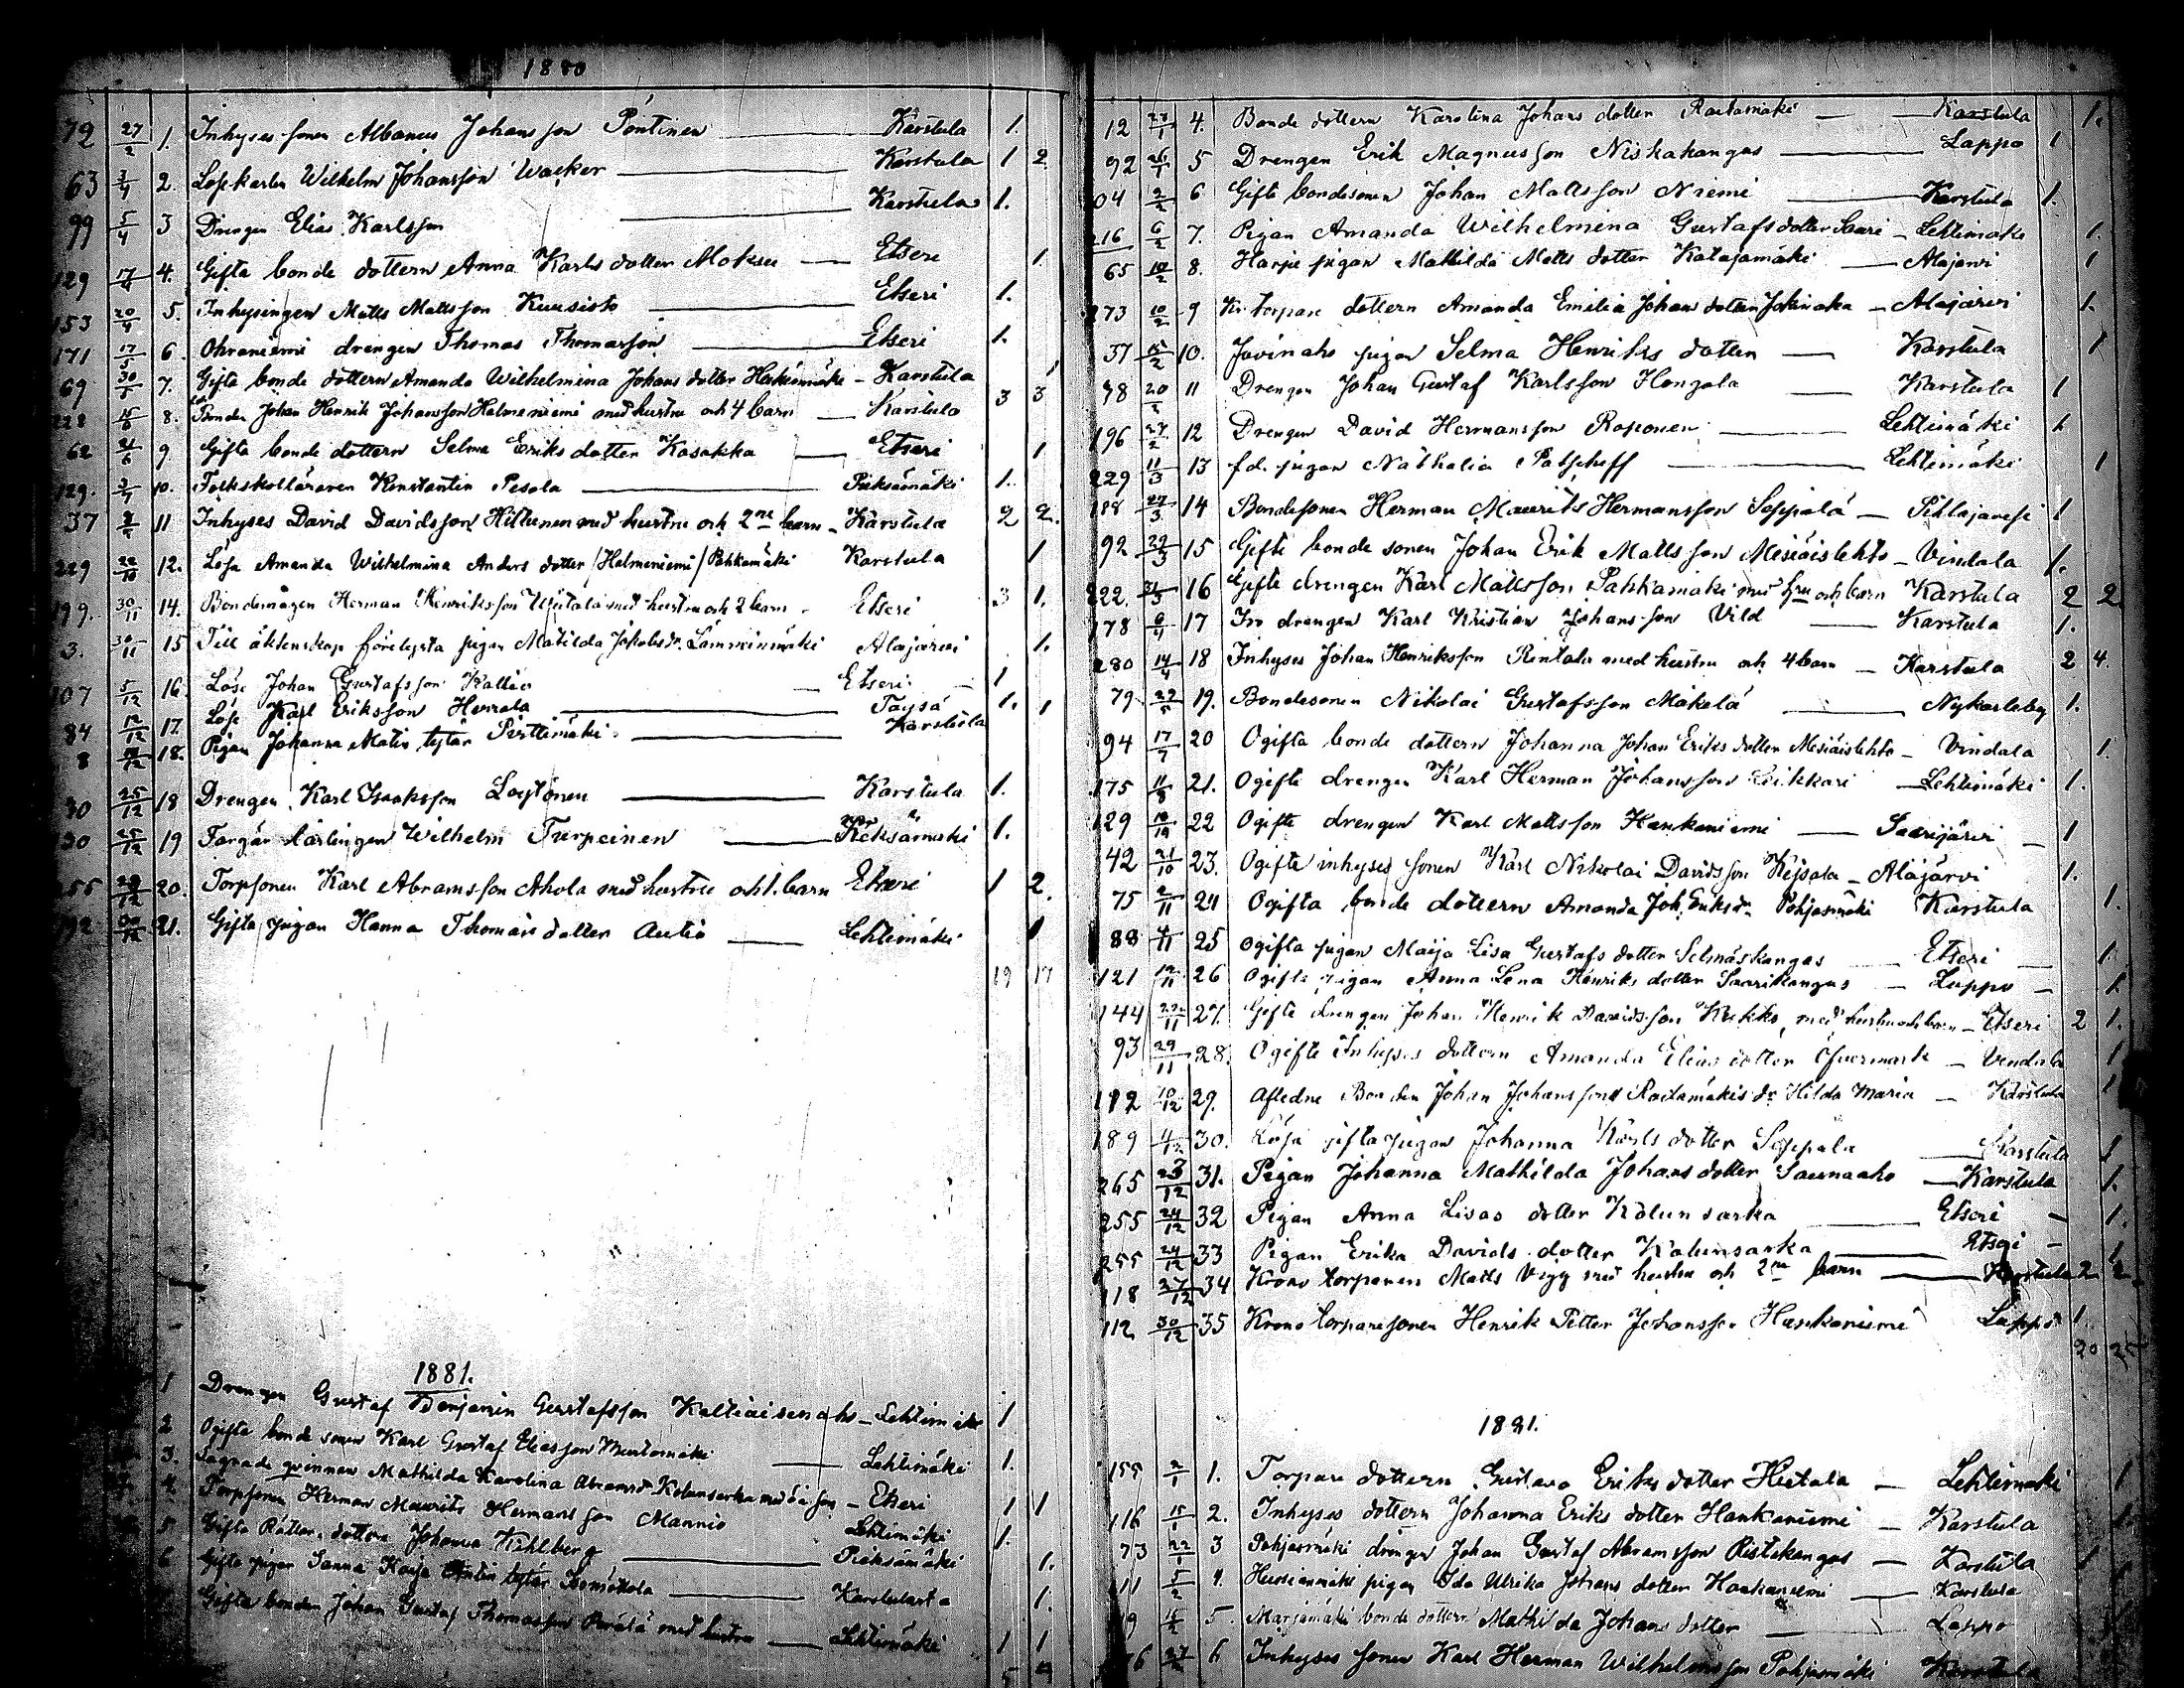 1880
72 27/2 1. Inhyses sonen Albanus Johansson Pöntinen Karstula 1.
63 3/4 2. Löskarlen Wilhelm Johansson Wacker Karstula 1 2
99 5/4 3 Drengen Elias Karlsson Karstula 1.
129 17/4 4. Gifta bonde dottern Anna Karls dotter Moksu Etseri 1.
153 20/4 5. Inhysingen Matts Mattsson Kuusisto Etseri 1.
171 17/5 6. Ohraniemi drengen Thomas Thomasson Etseri 1.
69 30/5 7. Gifta bonde dottern Amanda Wilhelmina Johans dotter Karstula 1
228 15/6 8. Bonden Johan Henrik Johansson Helmeniemi med hustru och 4 barn Karstula 3 3
62 21/6 9 Gifta bonde dottern Selma Eriks dotter Kasakka Etseri 1
129. 10. Folkskolläraren Konstantin Pesola Pieksämäki 1.
37 11 Inhyses David Davidsson Hiltunen med hustru och 2ne barn Karstula 2 2.
229 22/10 12. Lösa Amanda Wilhelmina Anders dotter /Helmeniemi/ Pohkamäki Karstula 1
199. 30/11 14. Bondemågen Herman Henriksson med hustru och 2 barn Etseri 3 1.
3. 30/11 15 Till äktenskap förelysta pigan Matilda Jakobsdr. Lamminmäki Alajärvi 1.
107 5/12 16. Löse Johan Gustafsson Kallio Etseri 1
84 12/12 17. Löse Karl Eriksson Töysä 1.
8 18. Pigan Johanna Matin tytär Pirttimäki Karstula 1
30 25/12 18 Drengen Karl Isaksson Löytönen Karstula 1.
20 25/12 19 Färgär lärlingen Wilhelm Turpeinen Pieksämäki 1.
255 20. Torpsonen Karl Abramsson Ahola med hustru och 1. barn Etseri 1 2.
192 21. Gifta pigan Hanna Thomas dotter Autio Lehtimäki 1
19 17
1881.
1 Drengen Gustaf Benjamin Gustafsson Lehtimäki 1
2 Ogifta bonde sonen Karl Gustaf Eliasson Mustamäki Lehtimäki 1.
3. qvinnan Mathilda Karolina Abramsdr Kolunsarka med sin son Etseri 1 1
4 Torpsonen Herman Maurits Hermansson Mannio Lehtimäki 1.
5 Gifta dottern Johanna Kihlberg Pieksämäki 1.
6 Gifta pigan Sanna Kaisa Antin tytär Karstulasta 1.
Gifta bonden Johan Gustaf Thomasson med hustru Lehtimäki 1 1
12 4. Bonde dottern Karolina Johans dotter Rautamäki Karstula 1.
92 5 Drengen Erik Magnusson Niskakangas Lappo 1
04 2/2 6 Gifte bondesonen Johan Mattsson Niemi Karstula 1.
216 6/2 7. Pigan Amanda Wilhelmina Gustafsdotter Saari Lehtimäki 1.
65 10/2 8. Harju pigan Mathilda Matts dotter Katajamäki Alajärvi 1
273 10/2 9 Kr. torpare dottern Amanda Emilia Johans dotter Jokinaho Alajärvi 1.
37 15/2 10. pigan Selma Henriks dotter Karstula 1
78 20/2 11 Drengen Johan Gustaf Karlsson Hongola Karstula 1
196 27/2 12 Drengen David Hermansson Roponen Lehtimäki 1
229 11/3 13 f.d. pigan Nathalia Lehtimäki 1
188 27/3 14 Bondesonen Herman Maurits Hermansson Seppälä Pihlajavesi 1
92 29/3 15 Gifte bonde sonen Johan Erik Mattsson Mesiäislehto Vindala 1.
222. 31/3 16 Gifte drengen Karl Mattsson Pahkamäki med hu och barn Karstula 2 2
178 6/4 17 Iro drengen Karl Kristian Johansson Vild Karstula 1.
280 14/4 18 Inhyses Johan Henriksson Rintala med hustru och 4 barn Karstula 2 4.
79 29/5 19. Bondesonen Nikolai Gustafsson Mäkelä Nykarleby 1.
94 17/7 20 Ogifta bonde dottern Johanna Johan Eriks dotter Mesiäislehto Vindala 1.
175 11/8 21. Ogifte drengen Karl Herman Johansson Lehtimäki 1.
129 22 Ogifte drengen Karl Mattsson Hankaniemi Saarijärvi 1
42 21/10 23. Ogifte inhyses sonen Karl Nikolai Davidsson Alajärvi 1.
75 2/11 24 Ogifta bonde dottern Amanda Joh. Eriksdr Pohjasmäki Karstula 1.
88 4/11 25 Ogifta pigan Maija Lisa Gustafs dotter Selmäskangas Etseri 1.
121 12/11 26 Ogifta pigan Anna Lena Henriks dotter Saarikangas Lappo 1.
144 22/11 27. Gifte drengen Johan Henrik Davidsson Kukko, med hustru och barn Etseri 2 1.
93 29/11 28. Ogifta Inhyses dottern Amanda Elias dotter Öfvermark Vindala 1
192 10/12 29. Aflidne Bonden Johan Johanssons Rautamäkis dr. Hilda Maria Karstula 1
189 30. Lösa gifta pigan Johanna Karls dotter Seppälä Karstula 1
265 23/12 31. Pigan Johanna Mathilda Johans dotter Saunaaho Karstula 1.
255 24/12 32 Pigan Anna Lisas dotter Kolunsarka Etseri 1.
255 24/12 33 Pigan Erika Davids dotter Kolunsarka Etseri 1.
118 27/12 34 Krono torparen Matts Vigg med hustru och 2ne barn Karstula 2 2
112 30/12 35 Krono torparesonen Henrik Petter Johansson Hankaniemi Lappo 1.
20 25
1881.
155 2/1 1. Torpare dottern Gustava Eriks dotter Hietala Lehtimäki 1
116 15/1 2. Inhyses dottern Johanna Eriks dotter Hankaniemi Karstula 1.
73 22/1 3 Pohjasmäki drengen Johan Gustaf Abramsson Ristakangas Karstula 1
111 5/2 4. pigan Ida Ulrika Johans dotter Hankaniemi Karstula
5. Marjamäki bonde dottern Mathilda Johans dotter Lappo
76 27/2 6 Inhyses sonen Karl Herman Wilhelmsson Pohjasmäki Karstula